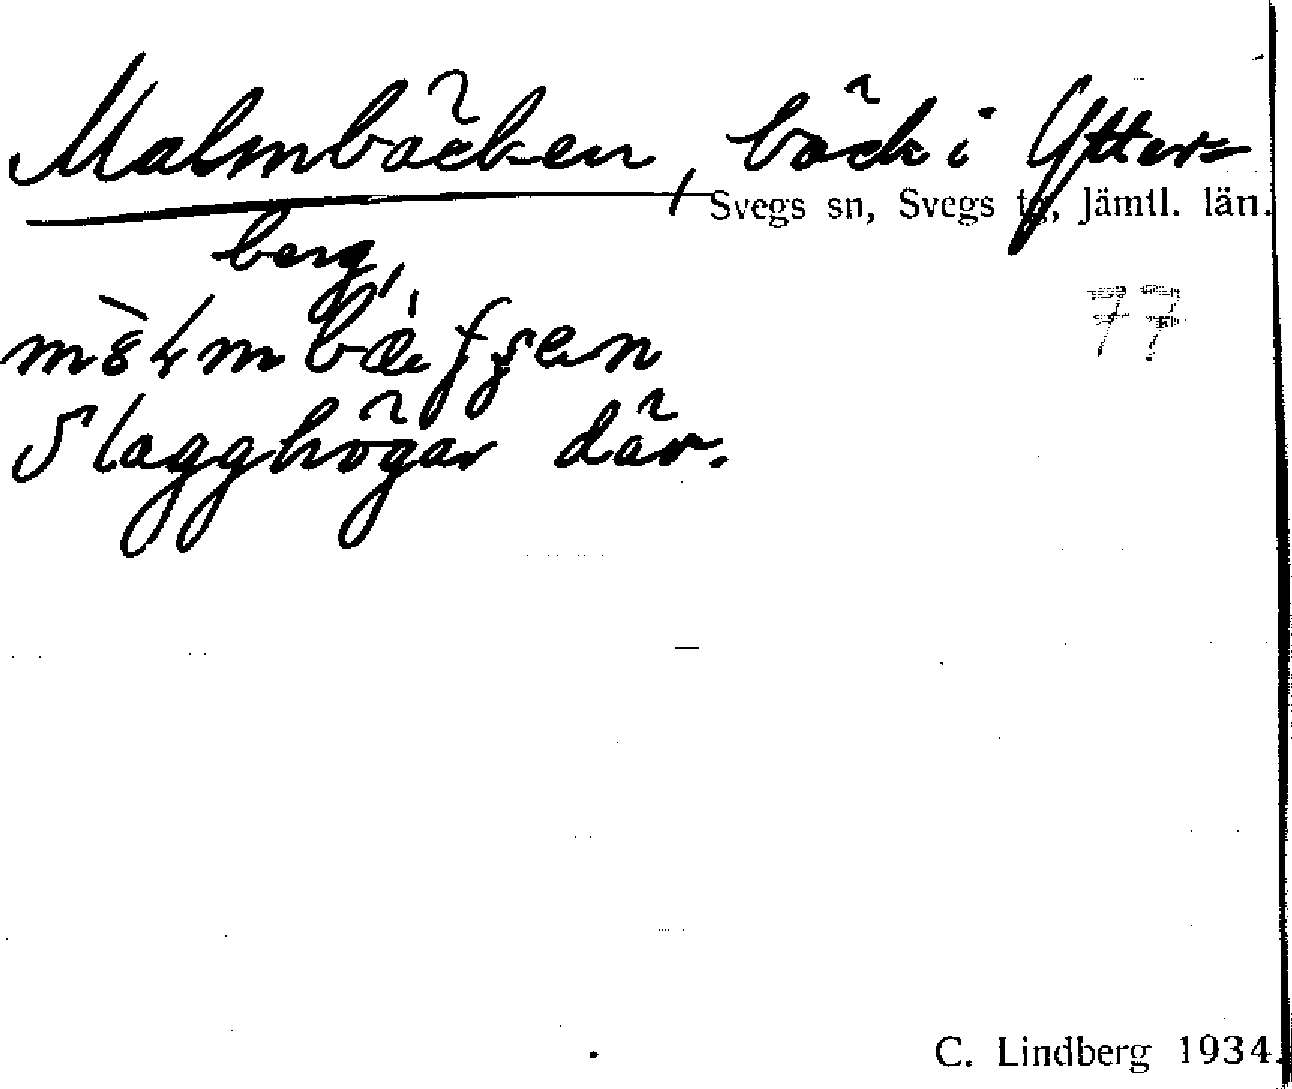 Malmbäcken, bäck i Ytter=
Svegs sn, Svegs tg, Jämtl. län.
berg,
77
Slagghögar där.
C. Lindberg 1934.